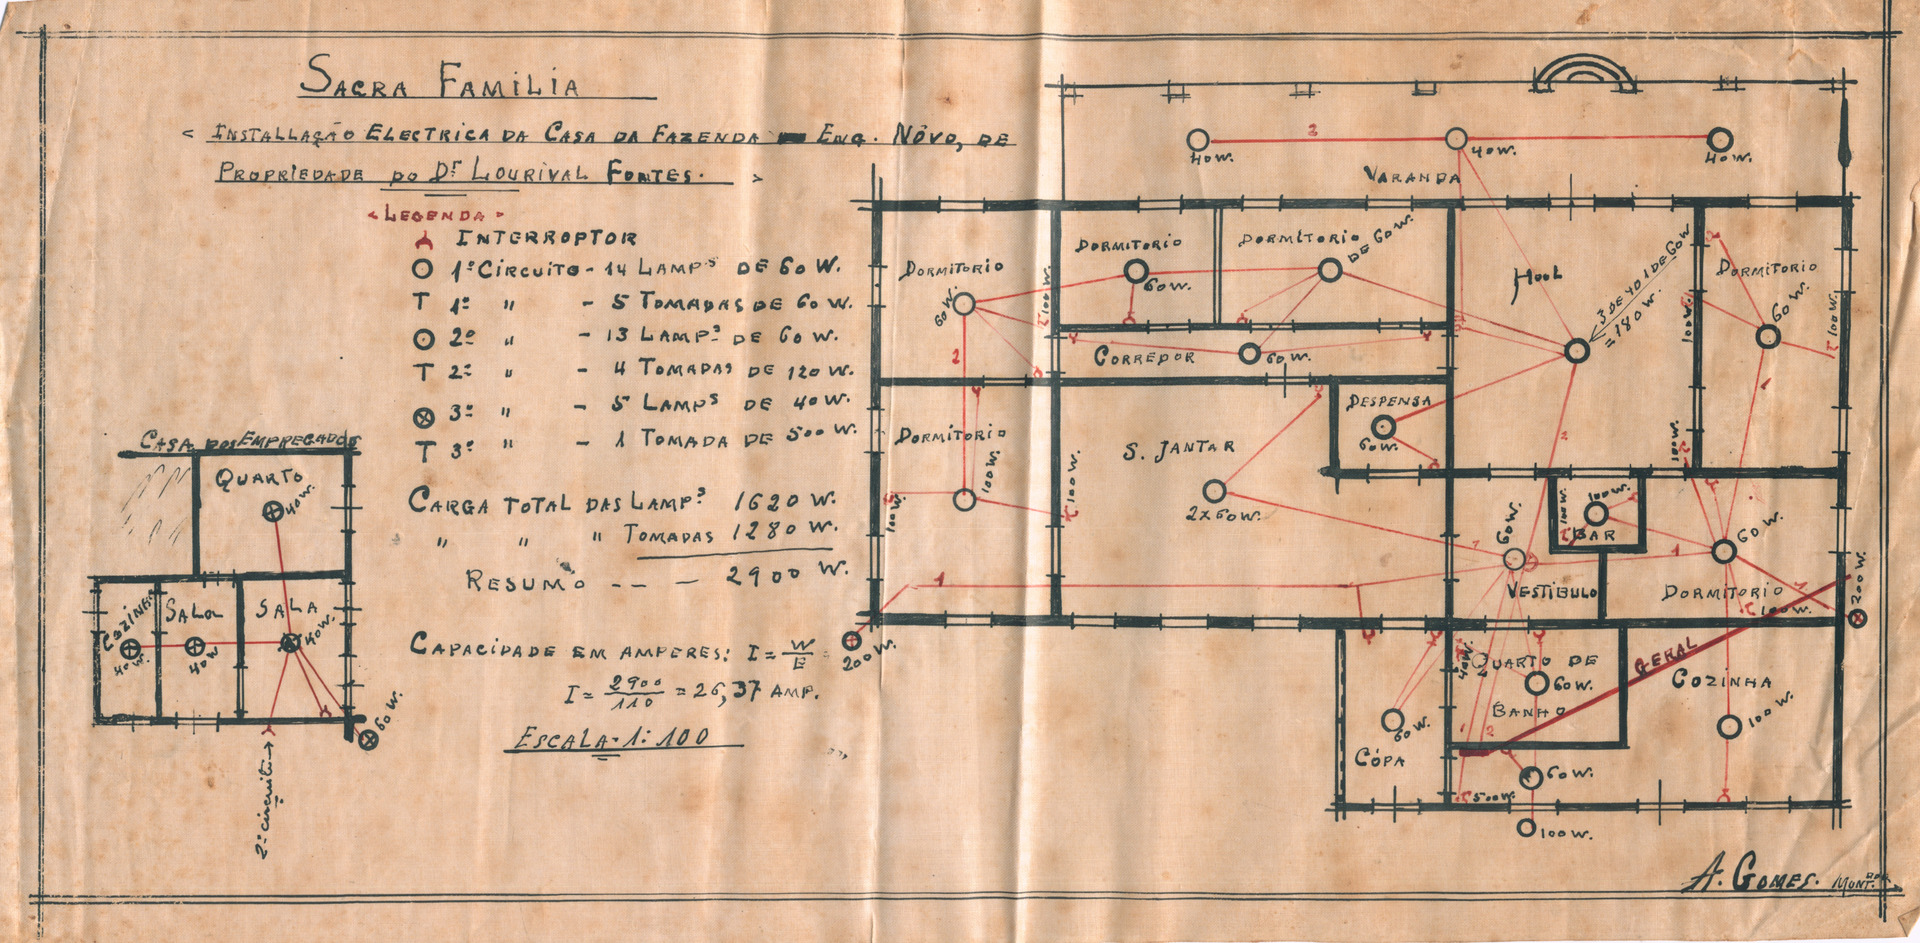 SACRA FAMILIA
< INSTALLAÇÃO ELECTRICA DA CASA DA FAZENDA ENG. NÔVO, DE
PROPRIEDADE DO Dr. LOURIVAL FONTES. >
<LEGENDA>
INTERROPTOR
1º CIRCUITO - 14 LAMPS DE 60 W.
T 1º " - 5 TOMADAS DE 60 W.
2º " - 13 LAMPS DE 60 W.
T 2º " - 4 TOMADAS DE 120 W.
3º " - 5 LAMPS DE 40 W.
T 3º " - 1 TOMADA DE 500 W.
CARGA TOTAL DAS LAMPS 1620 W.
" " " TOMADAS 1280 W.
RESUMO -- - 2900 W.
CAPACIDADE EM AMPERES: I = W/E
I = 2900/110 = 26,37 AMP.
ESCALA - 1:100
CASA DOS EMPREGADOS
QUARTO
40W.
COZINHA
40W.
SALA
40W
SALA
40W.
60 W.
2º circuito→
40W.
2
40W.
40W.
VARANDA
DORMITORIO
60W.
2
100W.
DORMITORIO
60W.
DORMITORIO
DE 60W.
HOOL
3 DE 40 1 DE 60W
=180 W.
DORMITORIO
60W.
100W.
100W.
100W.
1
CORREDOR
60W.
DORMITORIO
100W.
100W.
100W.
S. JANTAR
2x60W.
DESPENSA
60W.
2
1
200W.
60W.
VESTIBULO
100W.
100W.
BAR
1
60W.
DORMITORIO
100W.
1
200W.
COPA
60W.
QUARTO DE
BANHO
60W.
1
2
GERAL
COZINHA
100W.
60W.
500W.
100W.
A. GOMES. MONT.DOR